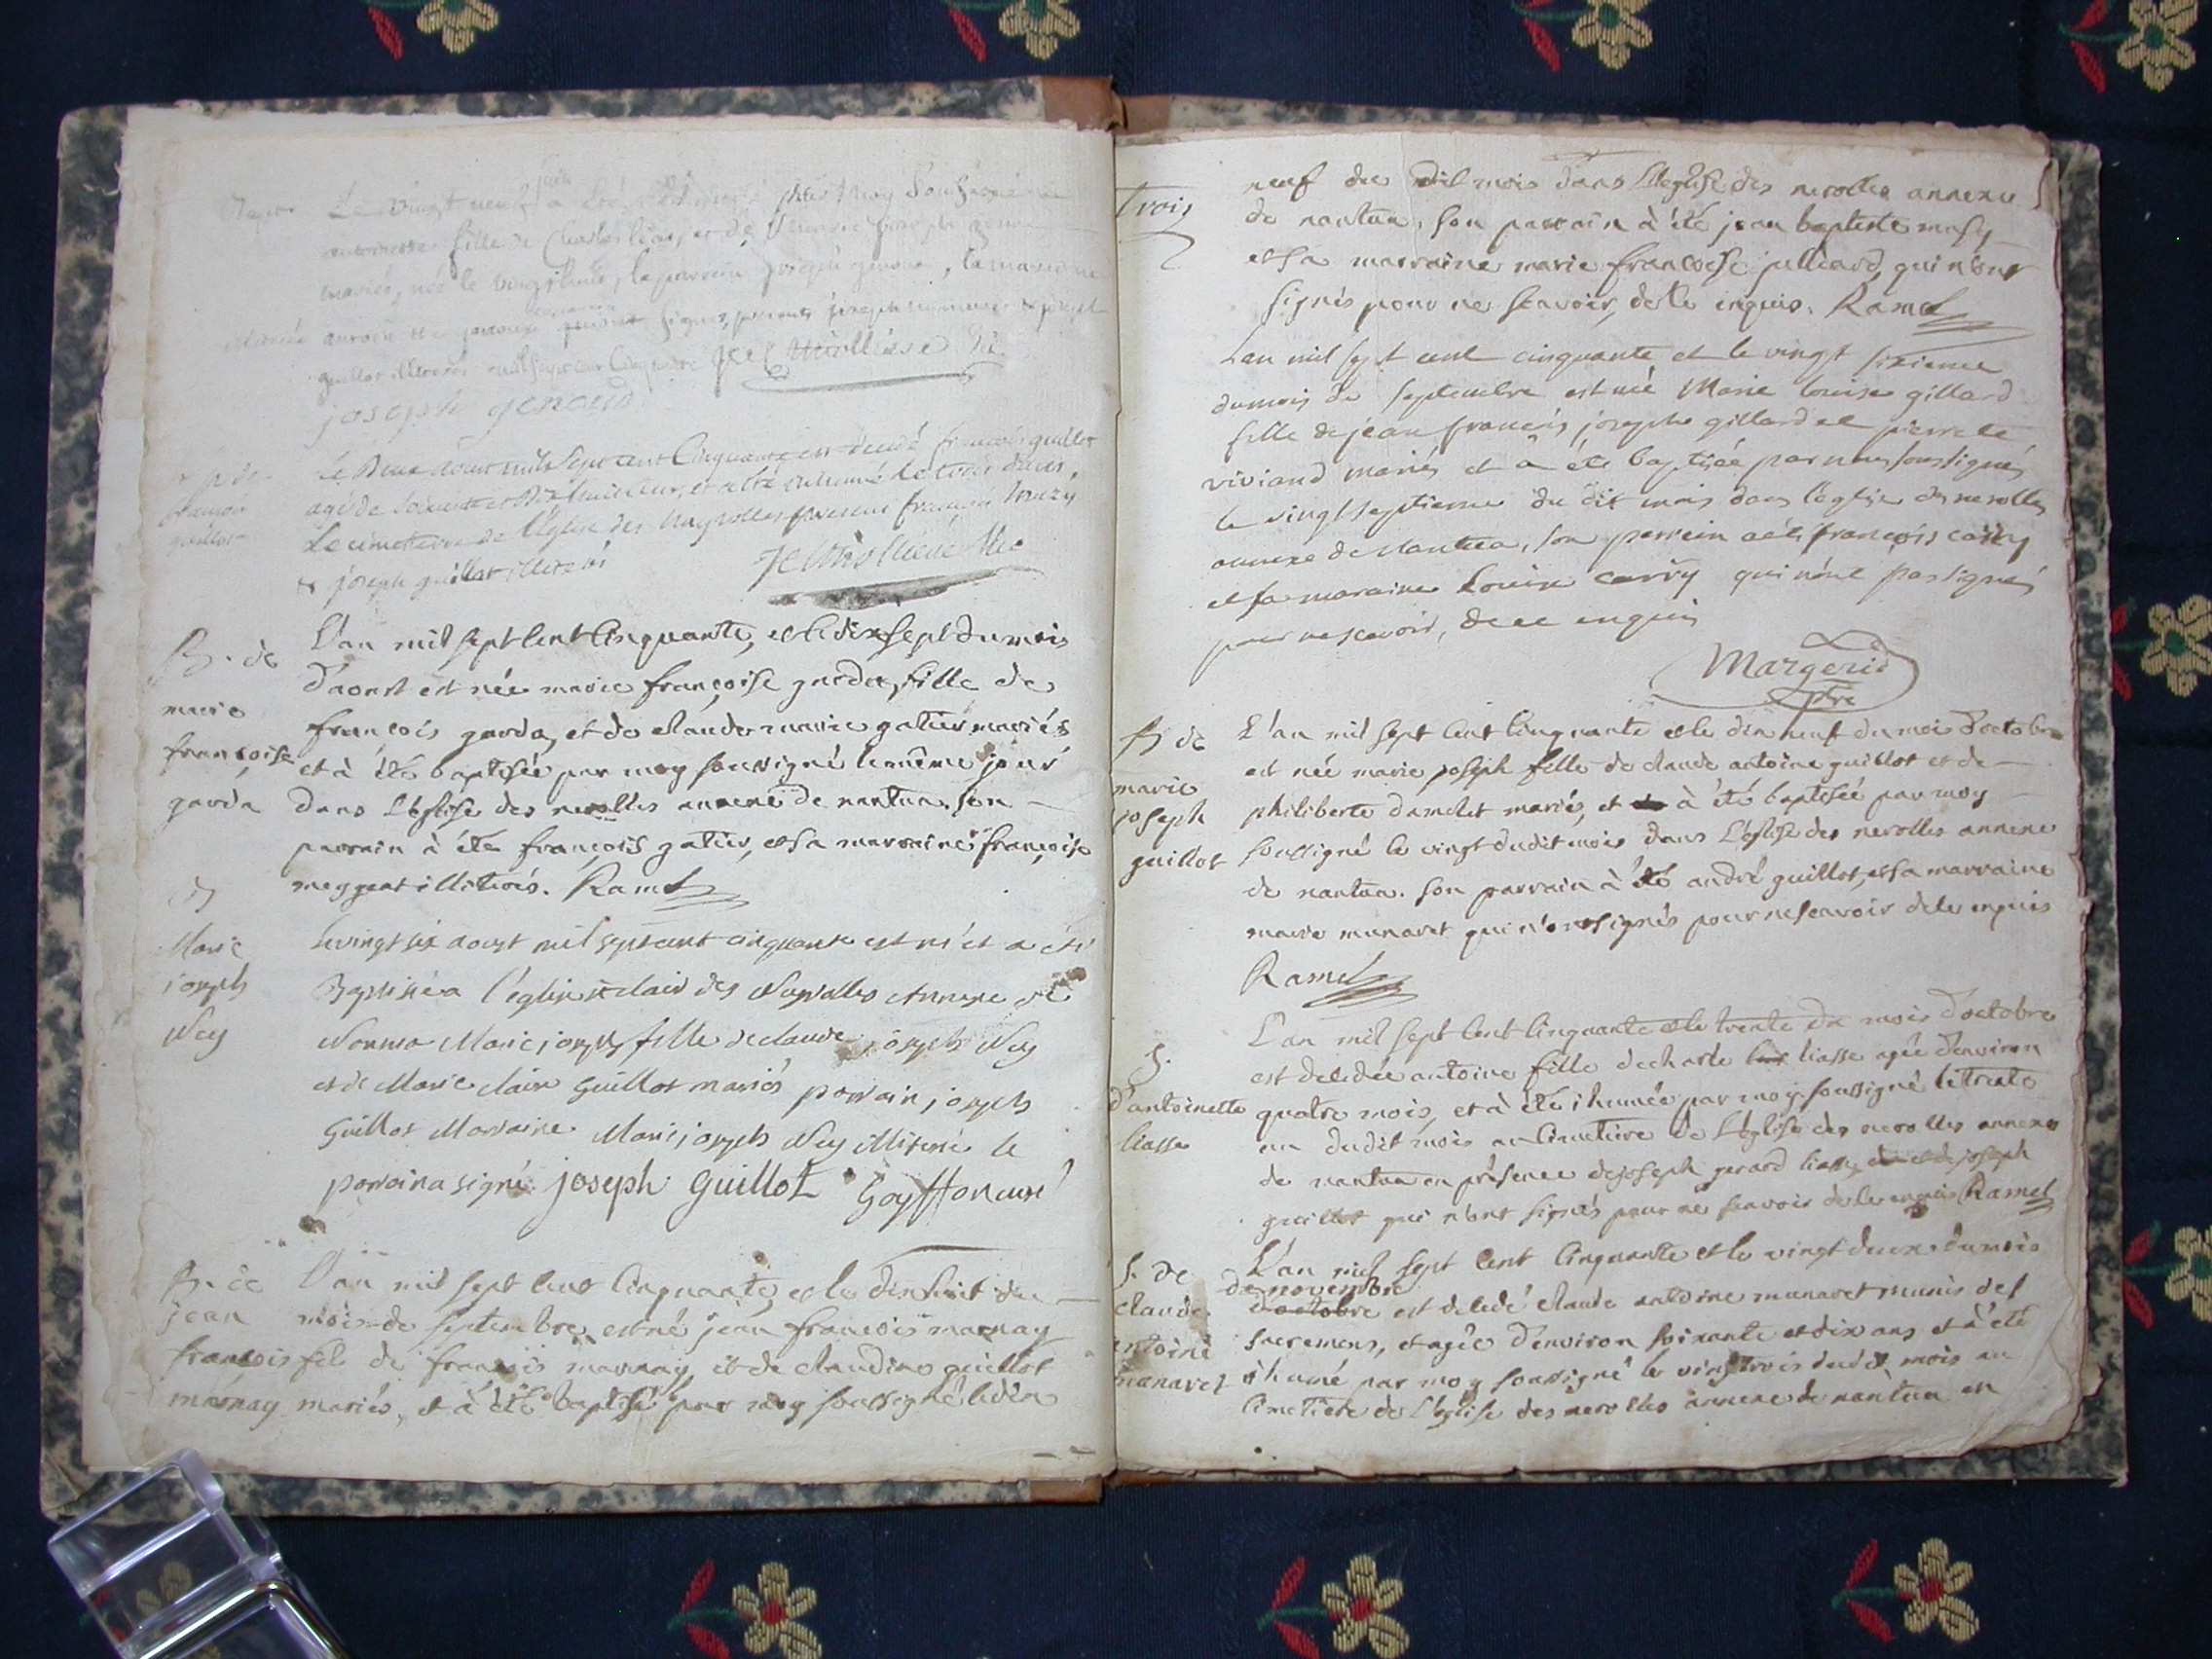 Le vingt neuf juin
fille de Charles liasse, et de
mariés, née le le parrain joseph genoud, la marraine
signés, presents
guillot illiterés mil sept cent Cinquante
joseph genoud
Le Deux Aoust mil Sept cent Cinquante est decedé françois guillot
françois
guillot
agé de Soixante et Dix huit ans, et a été inhumé le trois dans
Le cimetiere de l'Eglise des Neyrolles presens françois
& joseph guillot illiterés
B. de
marie
françoise
garda
L'an mil sept Cent Cinquante, et le dix sept du mois
d'aoust est née marie françoise garda, fille de
françois garda, et de claude marie gatier mariés
et à été baptisée par moy soussigné le même jour
dans L'eglise des nerolles annexe de nantua. son
parrain à été françois gatier, et sa marraine françoise
illiterés. Ramel
B
Marie
joseph
Ney
Le vingt six aoust mil sept cent cinquante est né et a été
Baptisée a l'eglise st clair des Neyrolles Annexe de
Nantua Marie joseph fille de claude joseph Ney
et de Marie claire Guillot mariés parrain joseph
Guillot Marraine Marie joseph Ney illiteré le
parrain a signé. joseph Guillot
B. de
jean
françois
marnay
L'an mil sept Cent Cinquante, et le dix huit du
mois de septembre est né jean françois marnay
fils de françois marnay, et de claudine guillot
mariés, et à été baptisé par moy soussigné le dix
trois
neuf du dit mois dans L'eglise des nerolles annexe
de nantua, son parrain à été jean baptiste
et sa marraine marie françoise julliard, qui n'ont
signés pour ne sçavoir, de ce enquis. Ramel
L'an mil sept cent cinquante et le vingt sixieme
du mois de septembre est née Marie louise gillard
fille de jean françois joseph gillard et pierrete
viviand mariés et a été baptisée par nous soussigné
le vingt septieme du dit mois dans l'eglise des nerolles
annexe de Nantua, son parrain a été françois carry
et sa maraine Louise carry qui n'ont pas signé
pour ne scavoir, de ce enquis
Margerid
ptre
B de
marie
joseph
guillot
L'an mil sept Cent Cinquante et le dix neuf du mois d'octobre
est née marie joseph fille de claude antoine guillot et de
philiberte damelet mariés, et à été baptisée par moy
soussigné le vingt dudit mois dans L'eglise des nerolles annexe
de nantua. son parrain à été andré guillot, et sa marraine
marie manaret qui n'ont signés pour ne scavoir de ce enquis
Ramel
S.
d'antoinette
liasse
L'an mil sept Cent Cinquante et le trente du mois d'octobre
est decedée antoine fille de charle liasse agée d'environ
quatre mois, et à été ihumée par moy soussigné le trente
un dudit mois au Cimetiere de L'eglise des nerolles annexe
de nantua en présence de joseph gerard liasse et de joseph
guillot qui n'ont signés pour ne scavoir de ce enquis Ramel
S. de
claude
antoine
manaret
L'an mil sept Cent Cinquante et le vingt deux du mois
de novembre
d'octobre est decedé claude antoine manaret munis des
sacremens, et agée d'environ soixante et dix ans et à été
ihumé par moy soussigné le vingt trois dudit mois au
Cimetiere de L'eglise des nerolles annexe de nantua en